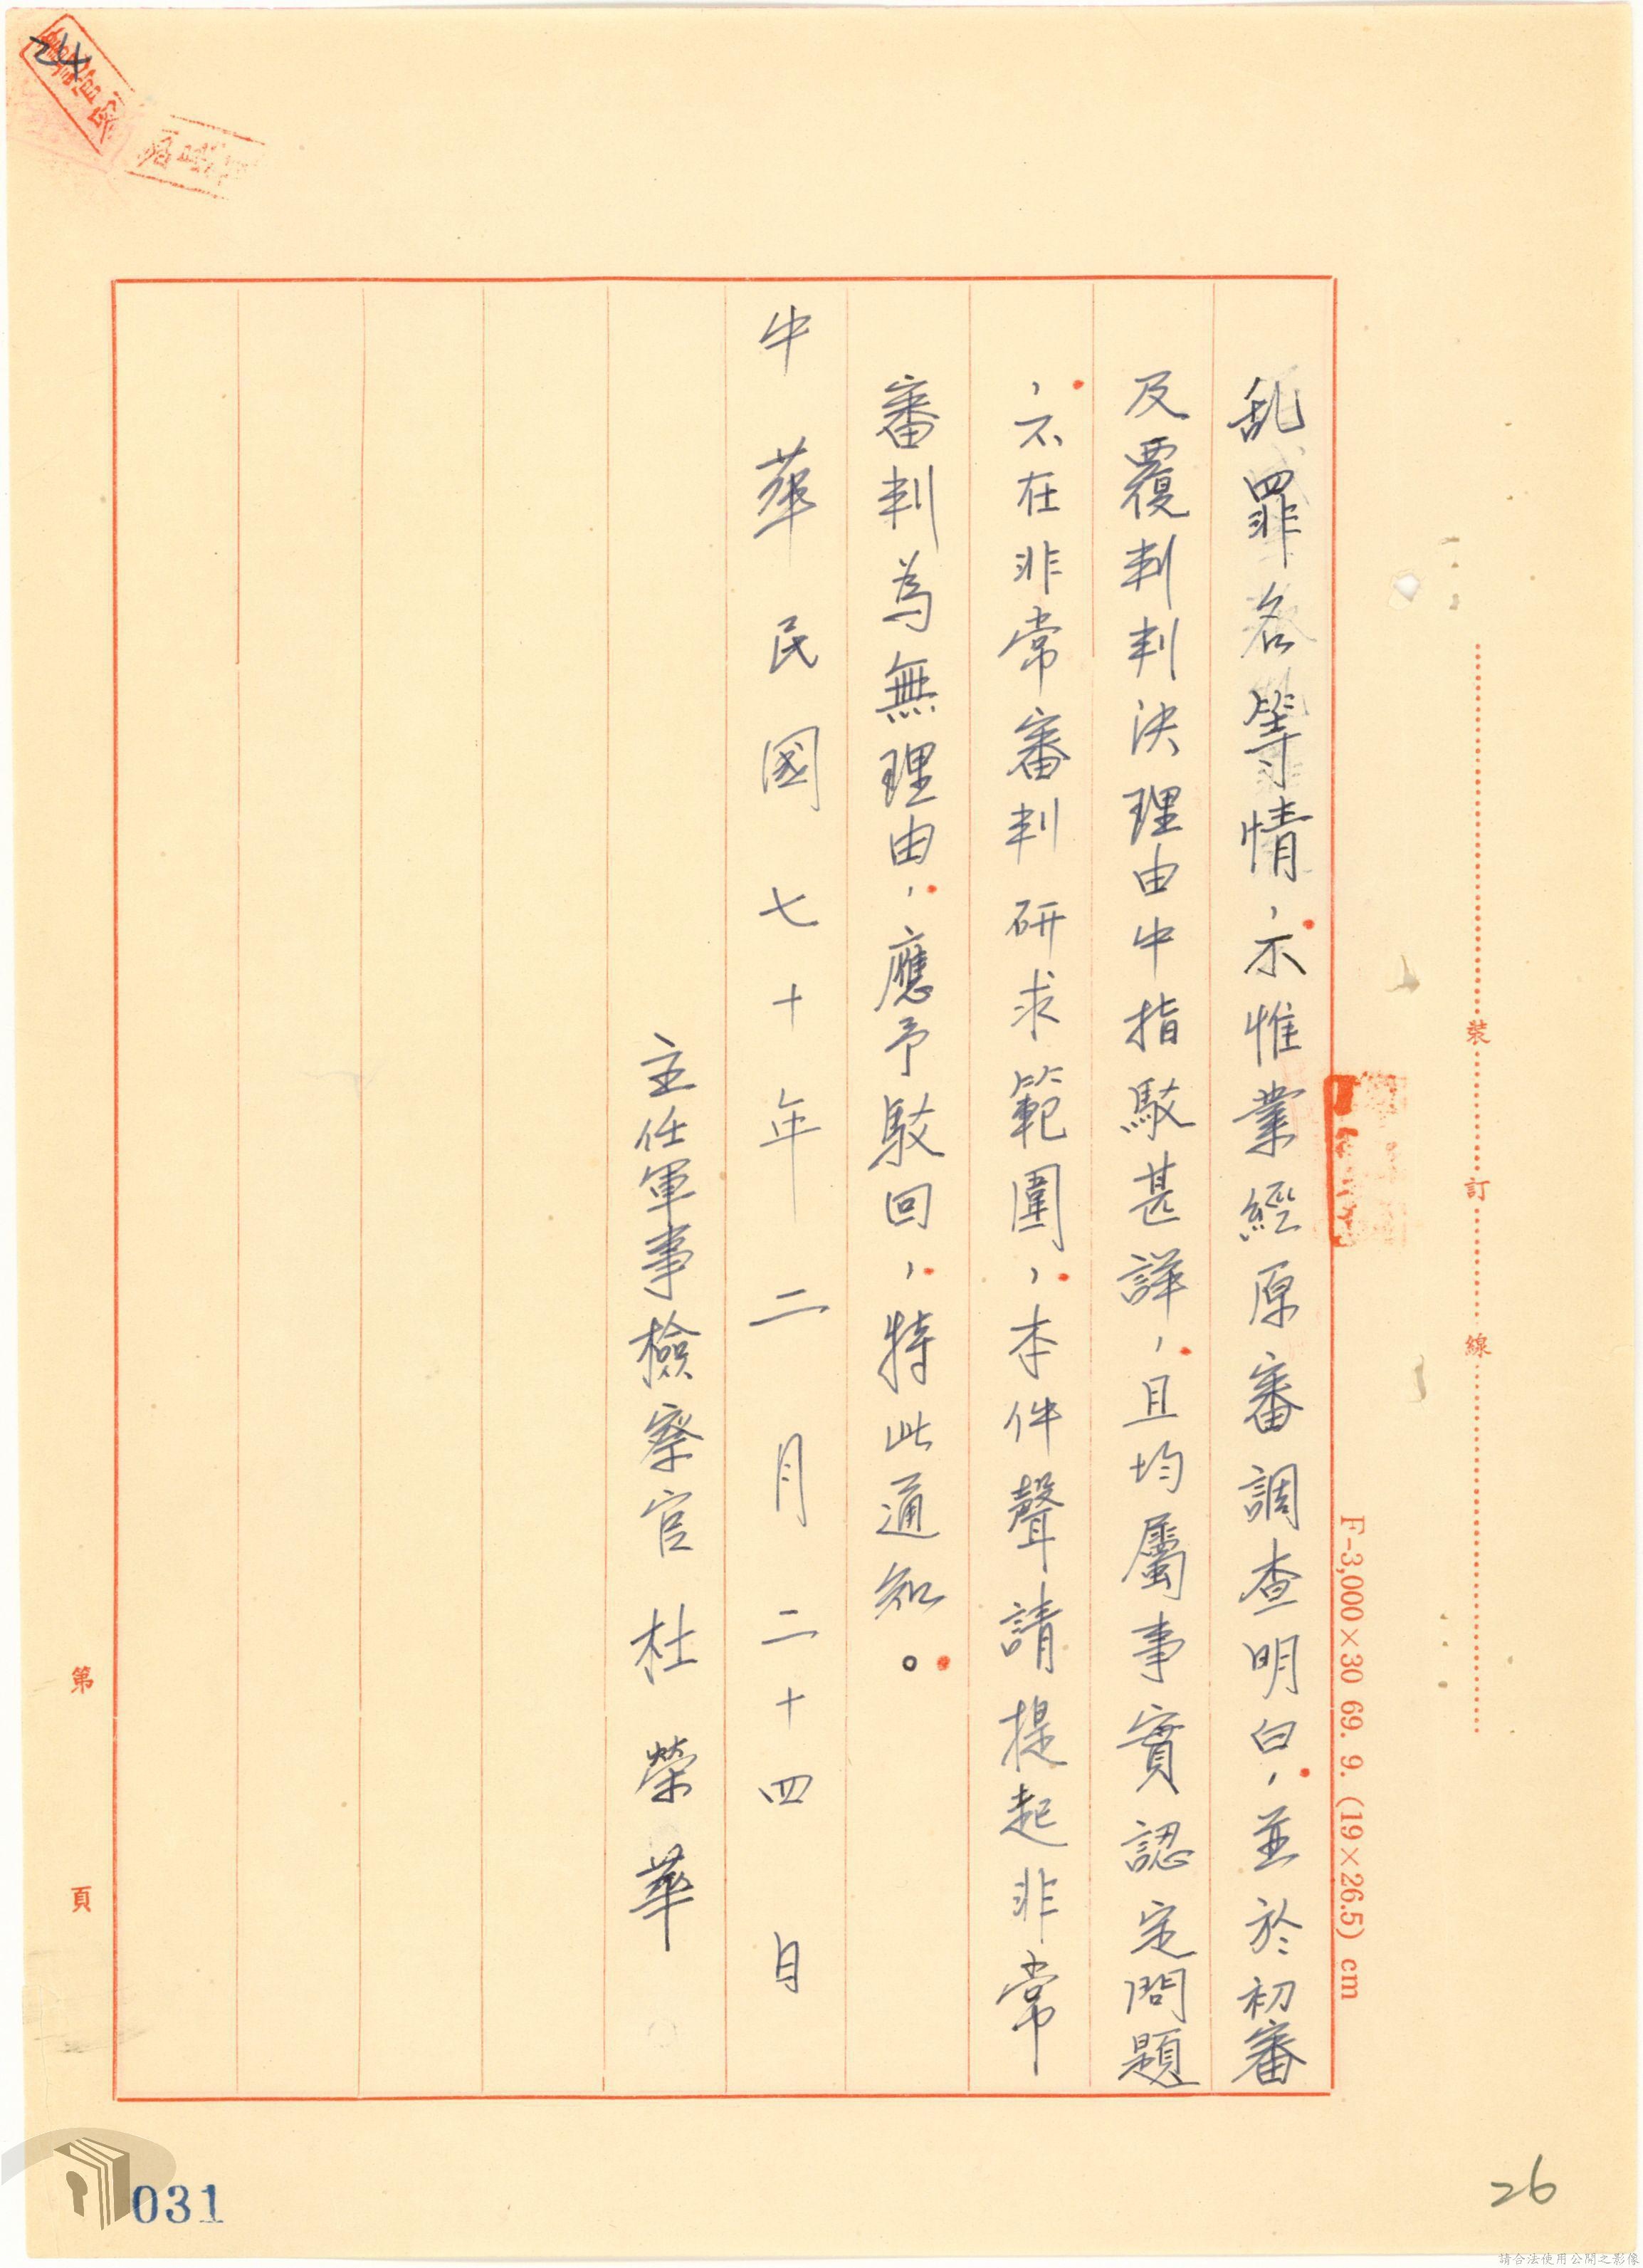 乱罪名等情，不惟業經原審調查明白，並於初審
及覆判判決理由中指駁甚詳，且均屬事實認定問題
，不在非常審判研求範圍，本件聲請提起非常
審判為無理由，應予駁回，特此通知。
中華民國七十年二月二十四日
主任軍事檢察官杜榮華
裝訂線
F-3,000×30 69. 9. (19×26.5) cm
第頁
24
26
031
請合法使用公開之影像